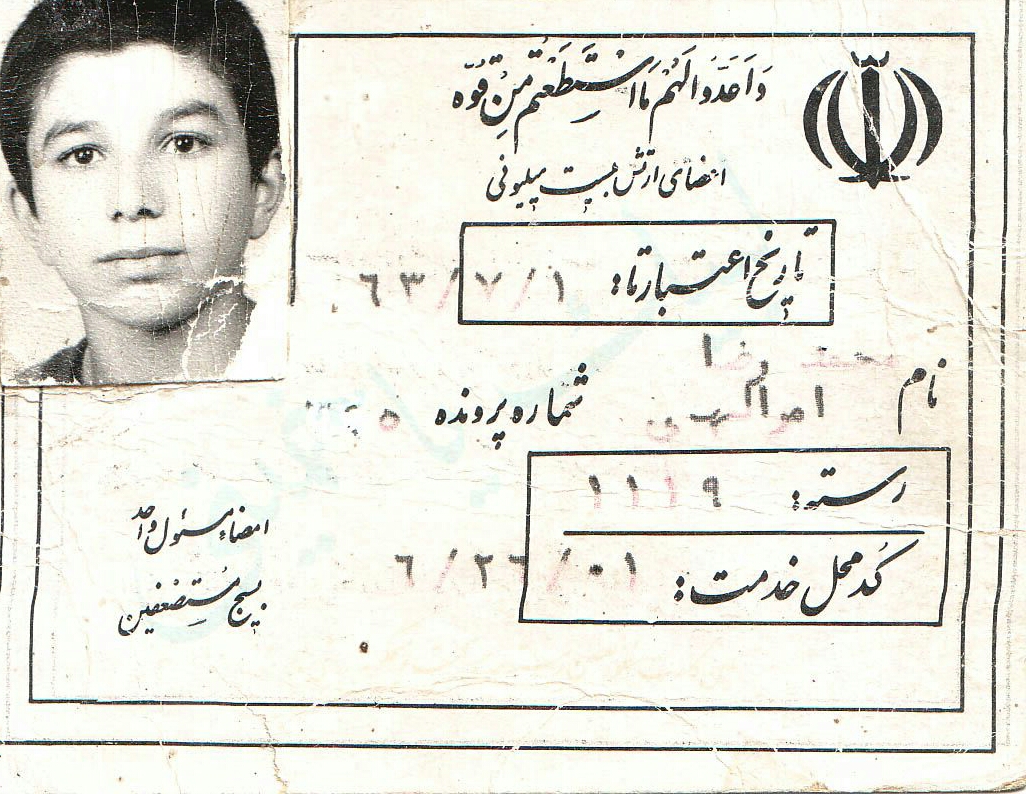 وَاَعِدّوُالَهُمْ مَااسْتَطَعْتُمْ مِنْ قُوَّه
اعضای ارتش بیست میلیونی
تاریخ اعتبار تا: ٦٣/٧/١
نام محمد رضا
شماره پرونده
رسته: ١١١٩
کد محل خدمت: ٦/٢٦/٠١
امضاء مسئول واحد
بسیج مُستضعَفین